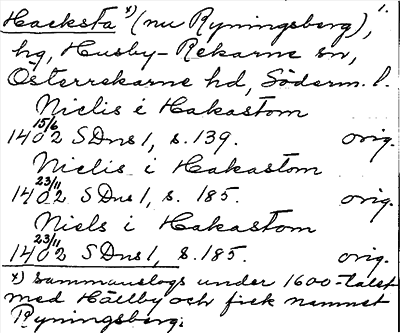 Hacksta x) (nu Ryningsberg), 1.
hg, Husby-Rekarne sn,
Österrekarne hd, Söderm. l.
Nielis i Hakastom
1402 15/6 SDns1, s. 139. orig.
Nielis i Hakastom
1402 23/11 SDns1, s. 185. orig.
Niels i Hakastom
1402 23/11 SDns1, s. 185. orig.
x) Sammanslogs under 1600-talet
med Hällby och fick namnet
Ryningsberg.